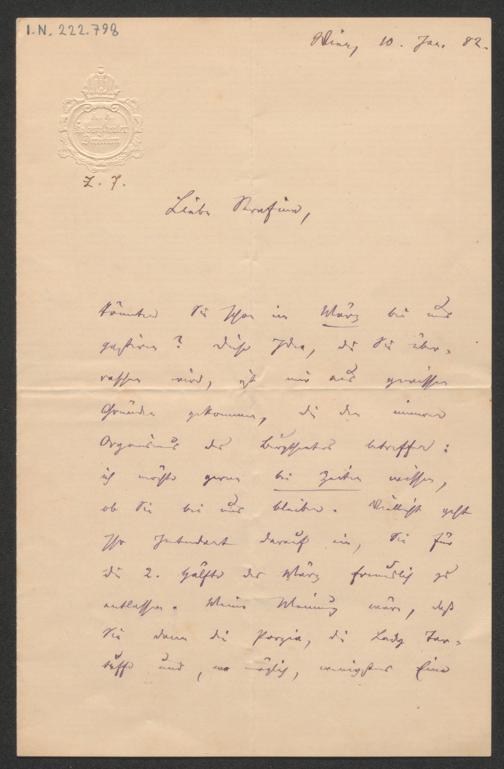 I.N. 222.798
Wien, 10. Jan. 82.
Z. J.
Liebe Serafine,
Könnten Sie schon im März bei uns
gastiren? Diese Idee, die Sie über-
raschen wird, ist mir aus gewissen
Gründen gekommen, die den inneren
Organismus des Burgtheaters betreffen:
ich möchte gerne bei Zeiten wissen,
ob Sie bei uns bleiben. Vielleicht geht
Ihr Intendant darauf ein, Sie für
die 2. Hälfte des März freundlich zu
entlassen. Meine Meinung wäre, daß
Sie dann die Porzia, die Lady Tar-
tuffe und, wo möglich, wenigstens Eine